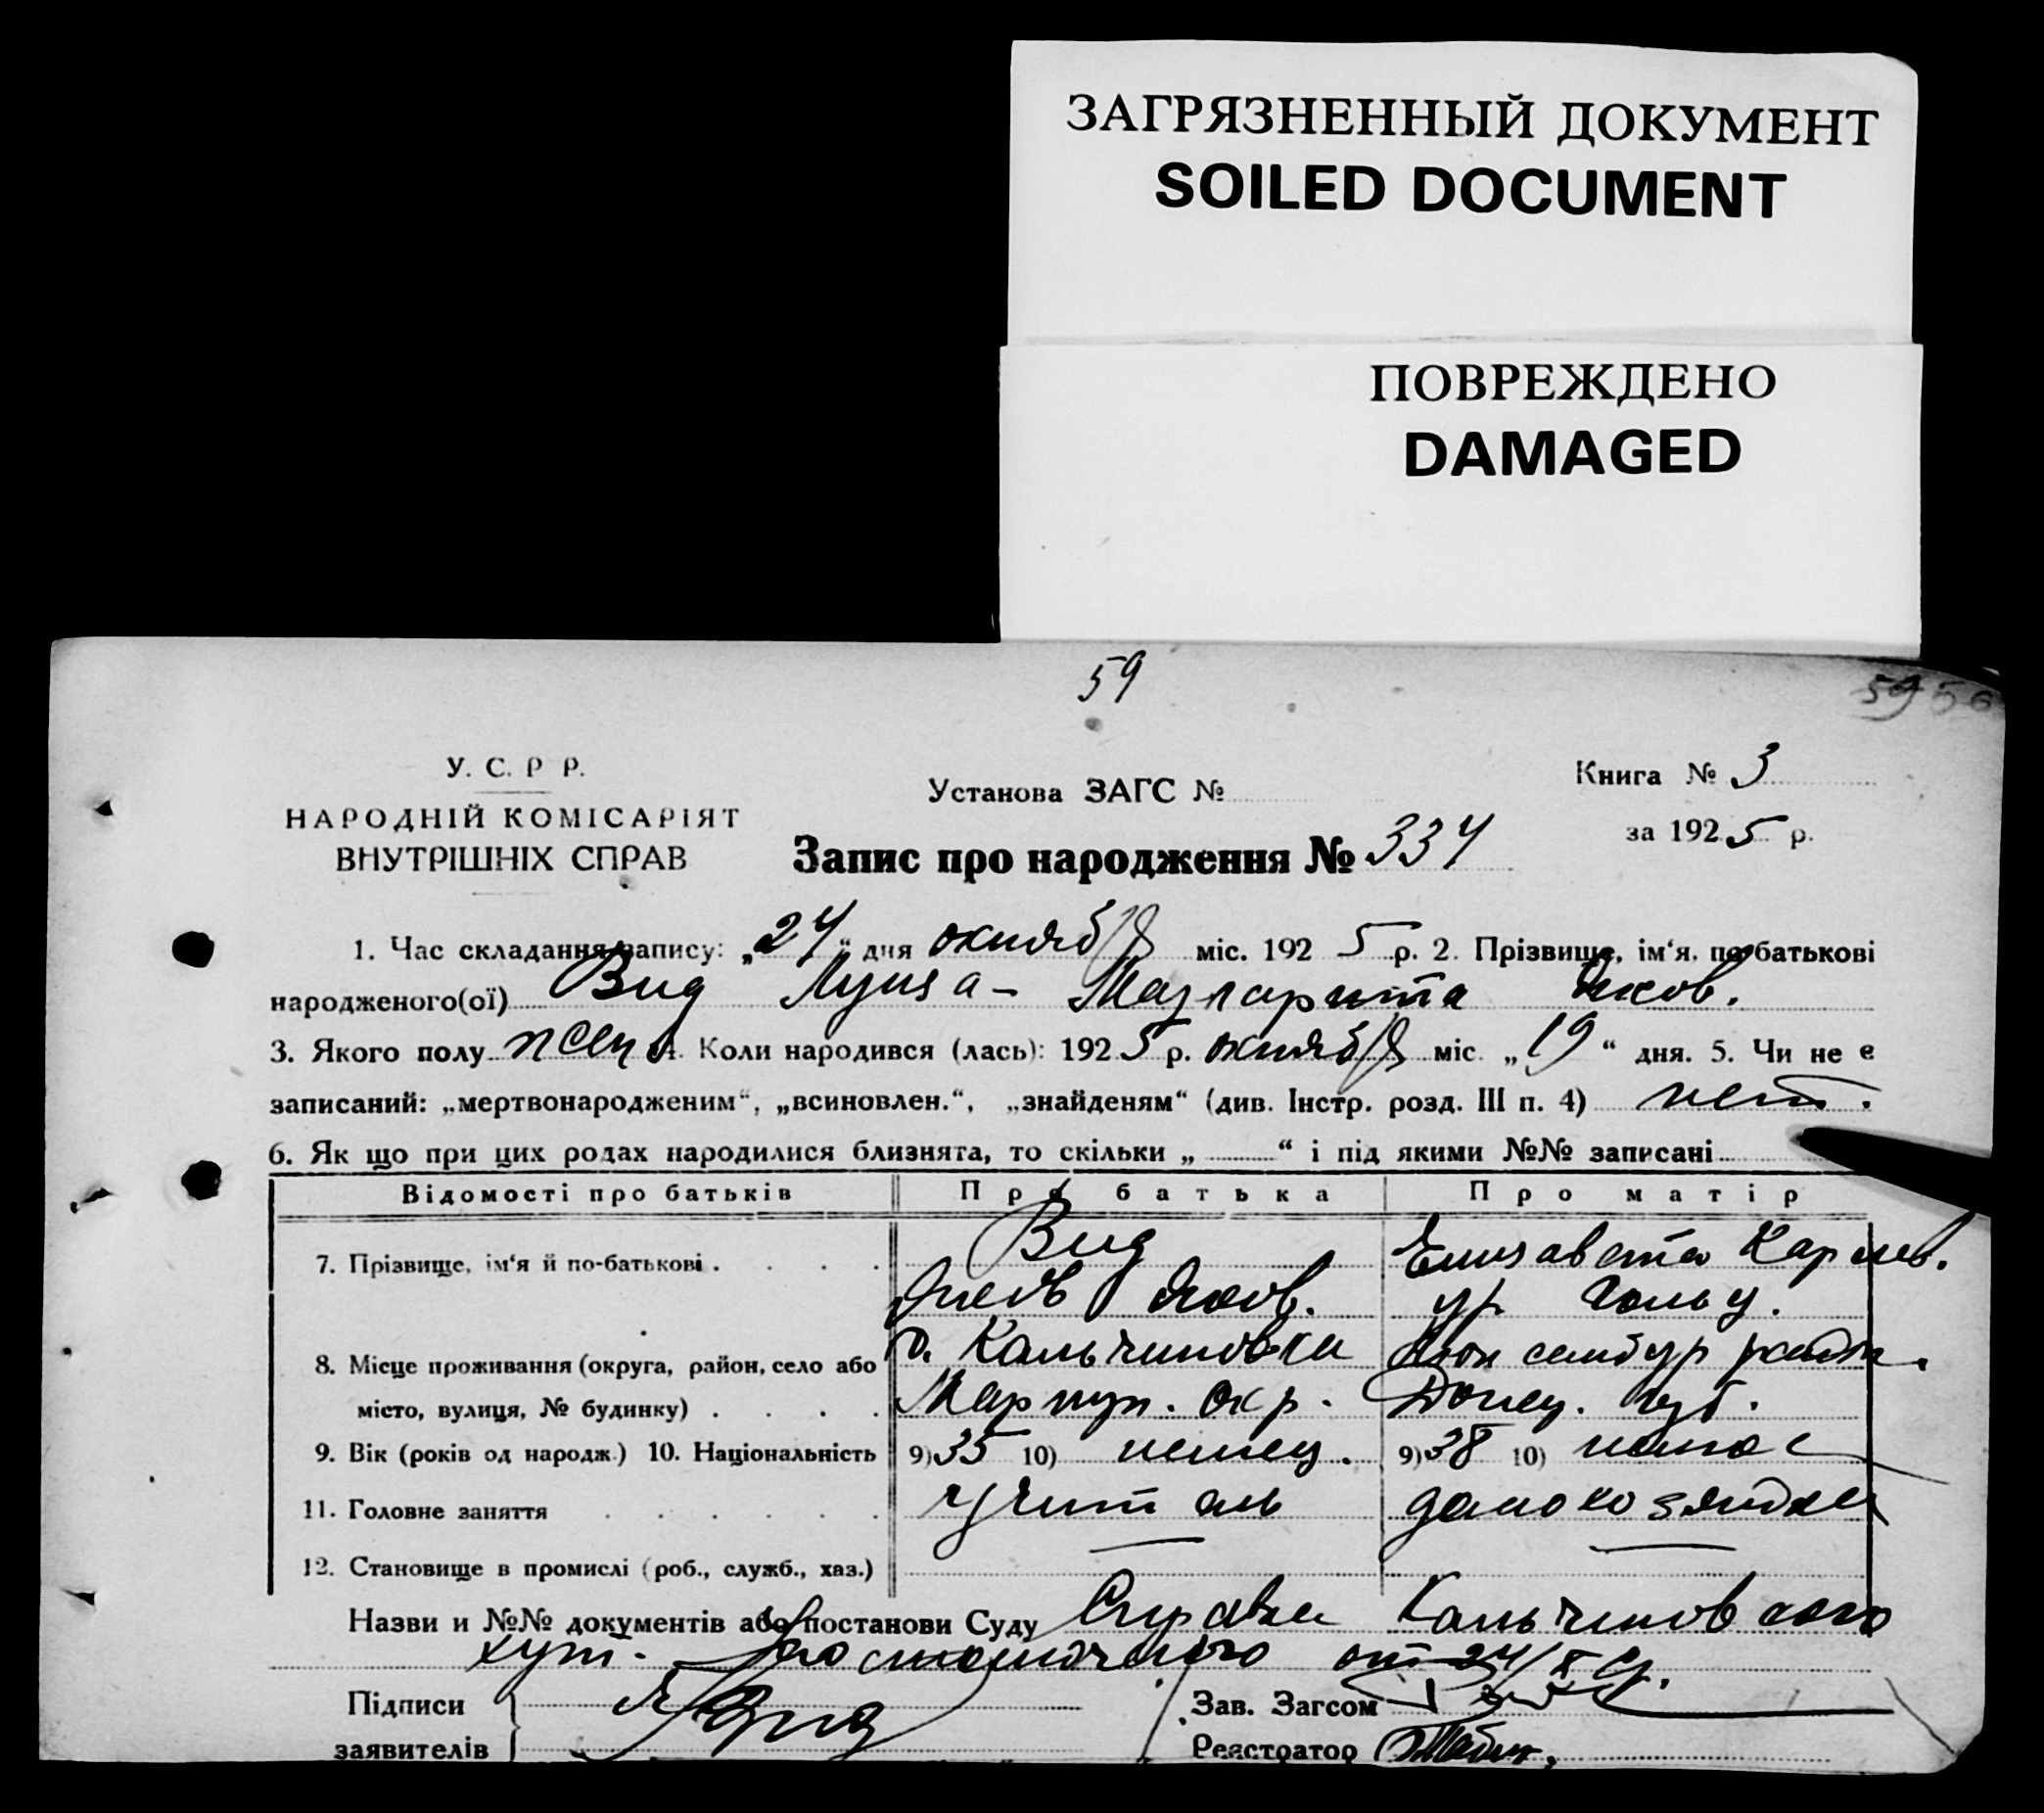 ЗАГРЯЗНЕННЫЙ ДОКУМЕНТ
SOILED DOCUMENT
ПОВРЕЖДЕНО
DAMAGED
59
59
У. С. Р Р.
НАРОДНІЙ КОМІСАРІЯТ
ВНУТРІШНІХ СПРАВ
Установа ЗАГС №
Книга № 3
за 1925 р.
Запис про народження № 334
1. Час складання запису: „24“ дня октября міс. 1925 р. 2. Прізвище, ім‘я, по батькові
народженого(ої) Вид Луиза - Маргарита Яков.
3. Якого полу женс 4. Коли народився (лась): 1925 р. октября міс. „19“ дня. 5. Чи не є
записаний: „мертвонародженим“, „всиновлен.“, „знайденям“ (див. Інстр. розд. III п. 4) нет.
6. Як що при цих родах народилися близнята, то скільки „ “ і під якими №№ записані
Відомості про батьків Про батька Про матір
7. Прізвище, ім‘я й по-батькові . . . . Вид Елизавета Карлов.
Яков Яков. ур Гольц.
8. Місце проживання (округа, район, село або Кальчиновка
місто, вулиця, № будинку) . . . . Мариуп. окр. Донец. губ.
9. Вік (років од народж.) 10. Національність 9) 35 10) немец. 9) 38 10)
11. Головне заняття . . . . . . учитель домохозяйка
12. Становище в промислі (роб., служб., хаз.)
Назви и №№ документів або постанови Суду Справка Кальчиновского
хут. от 24/X
Підписи
заявителів Я Вид
Зав. Загсом
Реєстратор